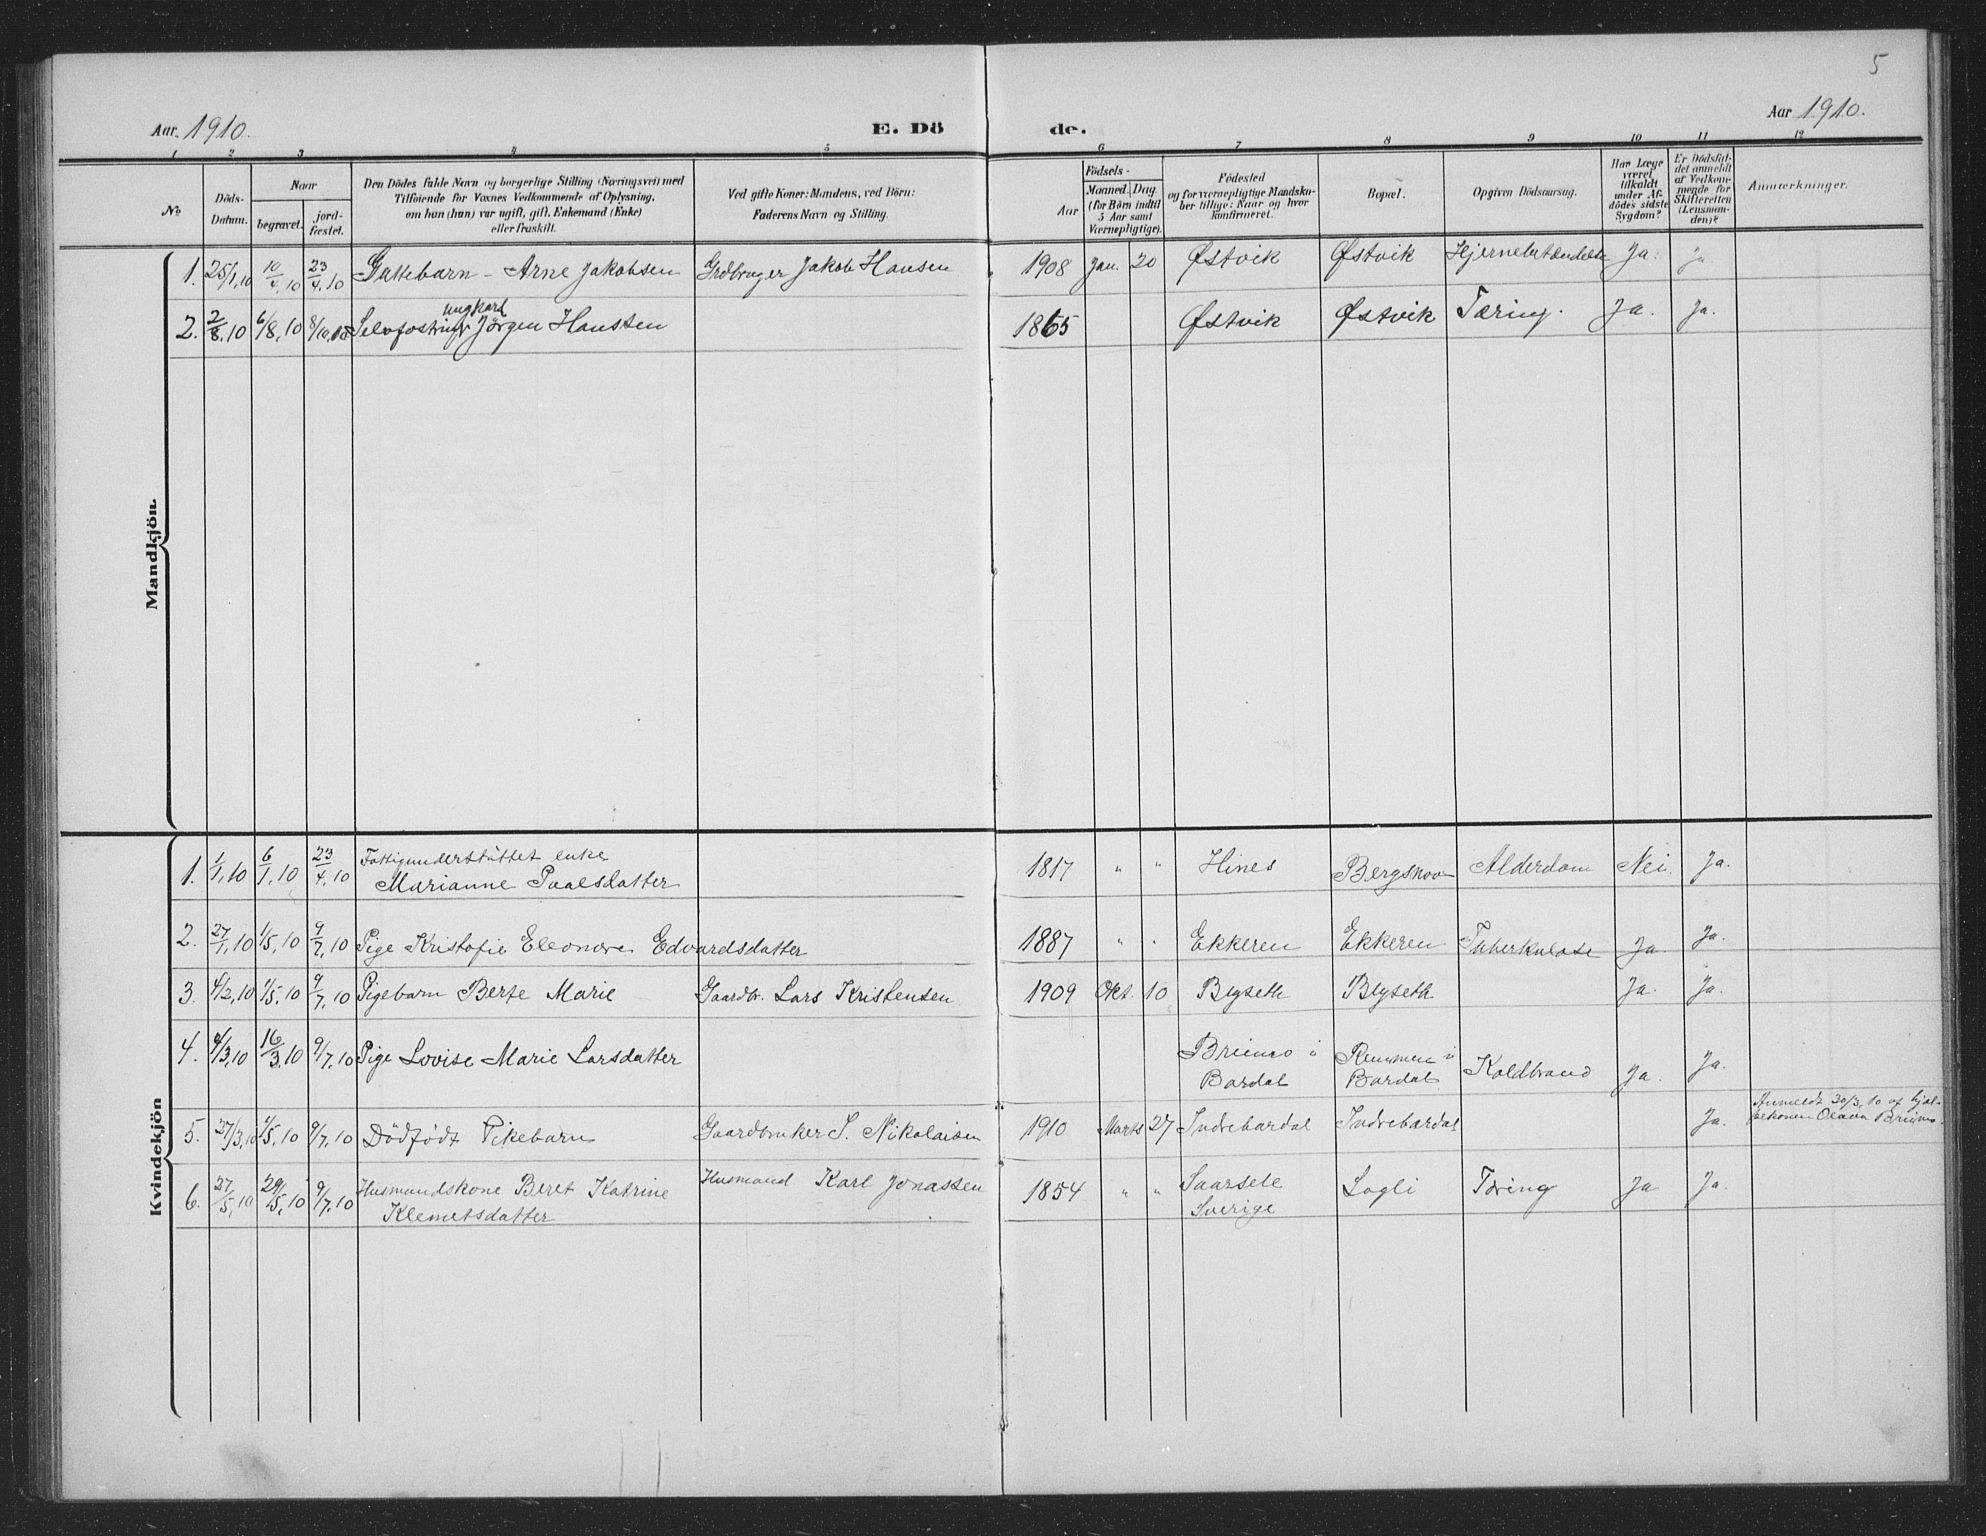 5
Aar. 1910.
E. Dö de.
Aar 1910.
1 2 3 4 5 6 7 8 9 10 11 12
No.
Döds-
Datum.
Naar
begravet.
jord-
fæstet.
Den Dödes fulde Navn og borgerlige Stilling (Næringsvei) med
Tilföiende for Voxnes Vedkommende af Oplysning,
om han (hun) var ugift, gift, Enkemand (Enke)
eller fraskilt.
Ved gifte Koner: Mandens, ved Börn:
Faderens Navn og Stilling.
Födsels-
Aar
Maaned. Dag.
(for Börn indtil
5 Aar samt
Værnepligtige).
Födested
og for værnepligtige Mandska-
ber tillige: Naar og hvor
konfirmeret.
Bopæl.
Opgiven Dödsaarsag.
Har Læge
været
tilkaldt
under Af-
dödes sidste
Sygdom?
Er Dödsfal-
det anmeldt
af Vedkom-
mende for
Skifteretten
(Lensman-
den)?
Anmærkninger.
Mandkjön.
1. 25/1, 10 10/4, 10 23/4, 10 Guttebarn - Arne Jakobsen Grdbruger Jakob Hansen 1908 Jan. 20 Østvik Østvik Ja. Ja
ungkarl
2. 2/8, 10 6/8, 10 Jørgen Hanssen 1865 Østvik Østvik Tæring. Ja. Ja.
Kvindekjön
1. 1/1, 10 6/1, 10 23/4, 10 Fattigunderstøttet enke
Marianne Paalsdatter 1817 " " Hines Alderdom Nei. Ja.
2. 27/1, 10 1/5, 10 9/7, 10 Pige Kristofie Eleonore Edvardsdatter 1887 " " Ekkeren Ekkeren Tuberkulose Ja Ja.
3. 4/2, 10 1/5, 10 9/7, 10 Pigebarn Berte Marie Gaardbr. Lars Kristensen 1909 Okt. 10 Blyseth Blyseth Ja. Ja.
4. 4/3, 10 16/3, 10 9/7, 10 Pige Lovise Marie Larsdatter Bardal Bardal Koldbrand Ja. Ja.
5. 27/3, 10 1/5, 10 9/7, 10 Dødfødt Pikebarn Gaardbruker S. Nikolaisen 1910 Marts 27 Indrebardal Indrebardal Ja. Anmeldt 30/3, 10 af hjæl-
pekonen Olava
6. 27/5, 10 29/5, 10 9/7, 10 Husmandskone Beret Katrine
Klemetsdatter Husmand Karl Jonassen 1854 " " Saarsele
Sverige Lagli Tæring Ja Ja.